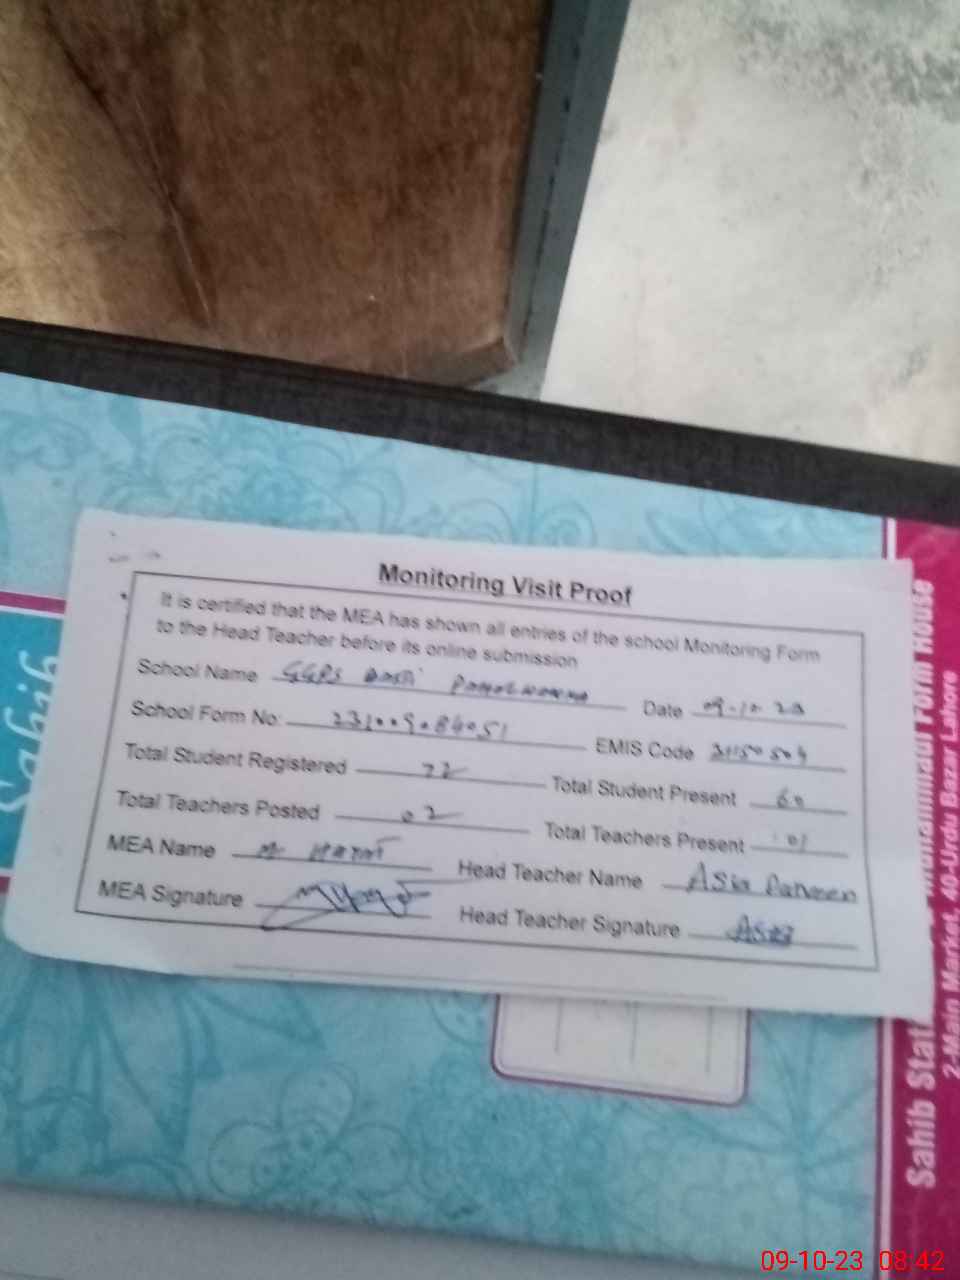 Monitoring Visit Proof
It is certified that the MEA has shown all entries of the school Monitoring Form
to the Head Teacher before its online submission
School Name GGPS Basti
Date 09-10-23
School Form No:
EMIS Code
Total Student Registered 72
Total Student Present 60
Total Teachers Posted 02
Total Teachers Present 01
MEA Name
Head Teacher Name Asia Parveen
MEA Signature
Head Teacher Signature Asia
Sahib
2-Main Market, 40-Urdu Bazar Lahore
Form House
09-10-23 08:42